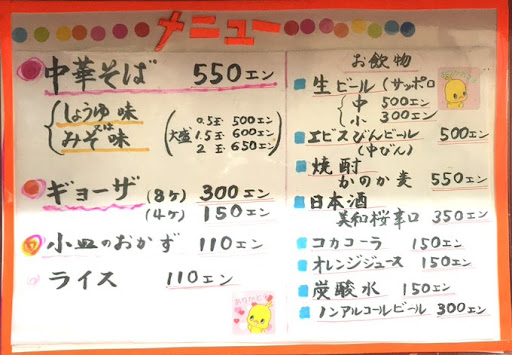 メニュー
中華そば 550エン
しょうゆ味
又は
みそ味
0.5玉 500エン
大盛 1.5玉 600エン
2玉 650エン
ギョーザ (8ケ) 300エン
(4ケ) 150エン
小皿のおかず 110エン
ライス 110エン
ありがとう
お飲物
生ビール (サッポロ
中 500エン
小 300エン
エビスびんビール 500エン
(中びん)
焼酎
かのか麦 550エン
日本酒
美和桜辛口 350エン
コカコーラ 150エン
オレンジジュース 150エン
炭酸水 150エン
ノンアルコールビール 300エン